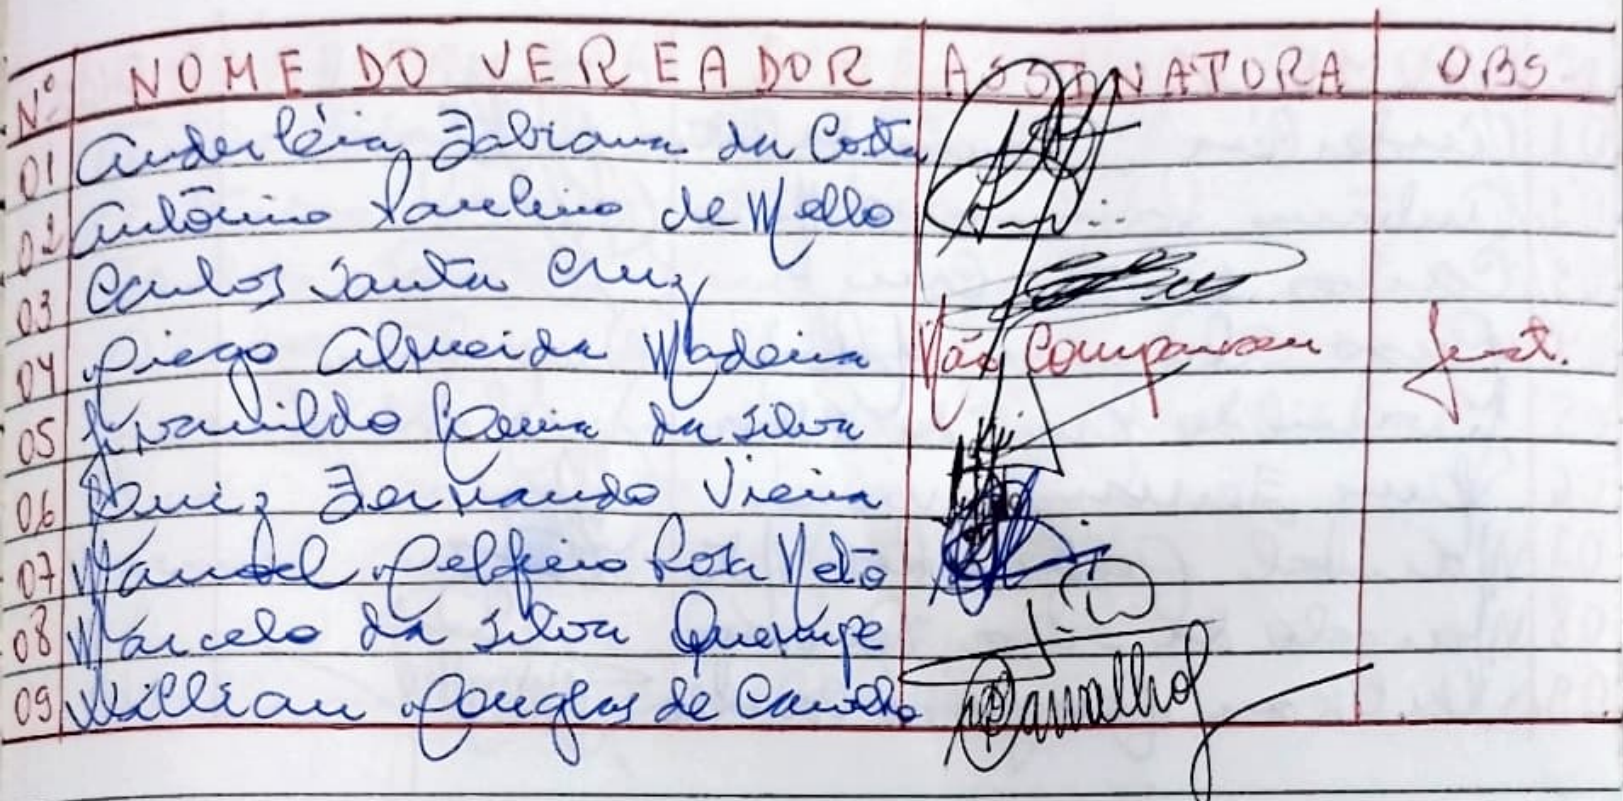 Nº NOME DO VEREADOR ASSINATURA OBS
01 Anderléia Fabiana da Costa
02 Antônino Paulino de Mello
03 Carlos Santa Cruz
04 Diego Almeida Madeira Não Compareceu Just.
05 Iranildo Pereira da Silva
06 Luiz Fernando Vieira
07 Manoel Delfieio Rosa Neto
08 Marcelo da Silva
09 Willian Douglas de Carvalho Carvalho